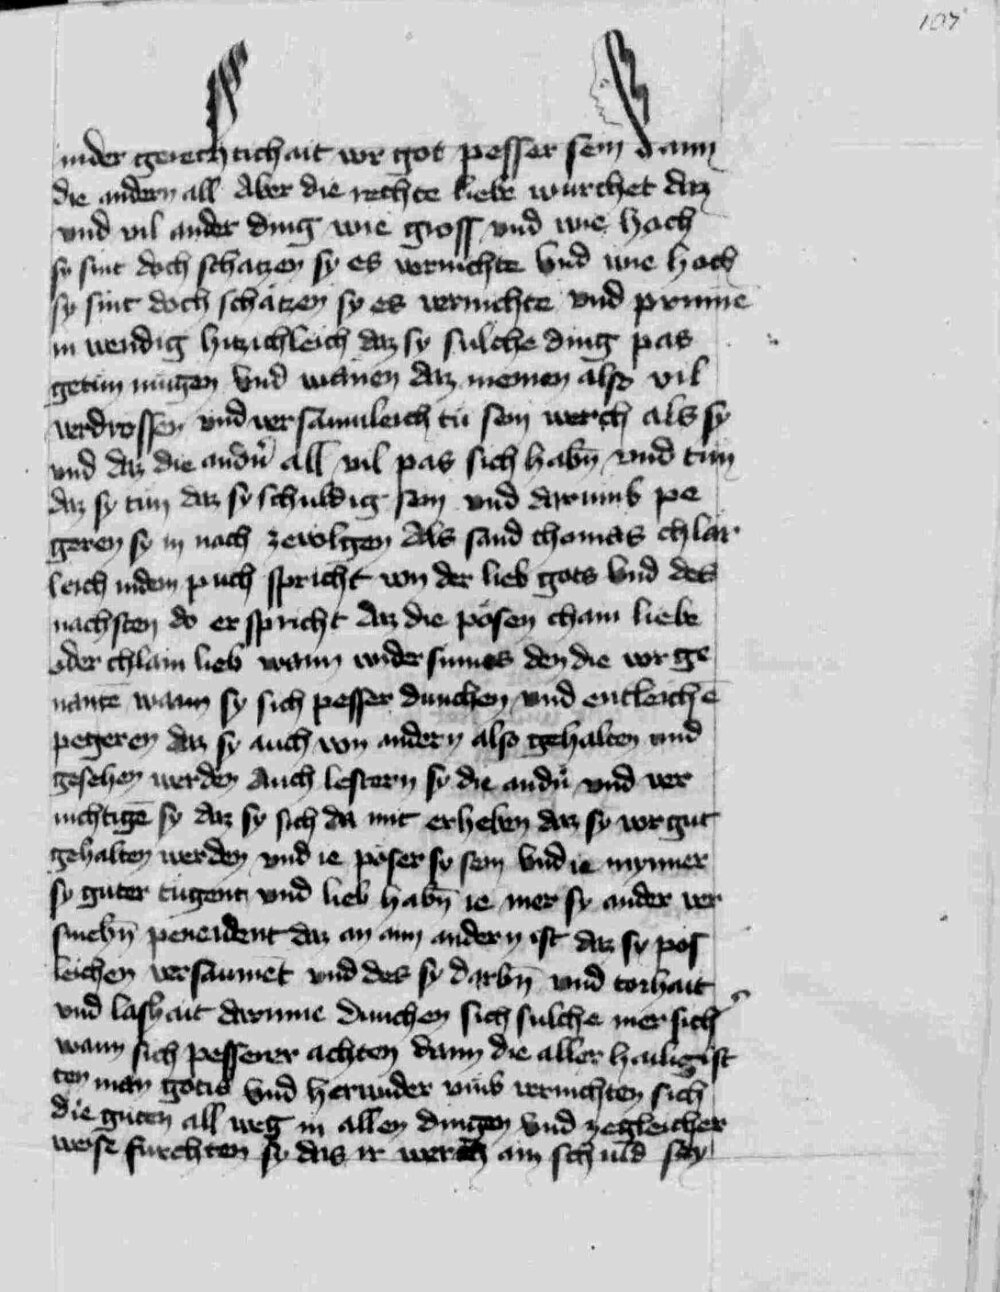 107
in der gerechtichait vor got pesser sein dann
die andern all Aber die rechte liebe wurchet daz
vnd vil ander ding wie gross vnd wie hoch
sy sint doch schatzen sy es vernichte Vnd wie hoch
sy sint doch schätzen sy es vernichte vnd prinnē
in wendig hitzichleich daz sy sulche ding pas
getun mügen Vnd wanen daz niemen also vil
verdrossen vnd versaumleich tü sein werch als sy
vnd daz die andn̄ all vil pas sich habn̄ vnd tun
daz sy tun daz sy schuldig sein vnd darumb pe
geren sy in nach zevolgen Als sand thomas chlär
leich in dem puch spricht von der lieb gots Vnd des
nachsten do er spricht daz die pösen chain liebe
oder chlain lieb wann wider sinnes den die vor ge
nantē wann sy sich pesser dunchen vnd entleichē
pegeren daz sy auch von andern also gehalten vnd
gesehen werden Auch lestern sy die andn̄ vnd ver
nichtigē sy daz sy sich da mit erheben daz sy vor gut
gehalten werden vnd ie pöser sy sein Vnd ie mynner
sy guter tugent vnd lieb habn̄ ie mer sy ander ver
smehn̄ peneident daz an ain andern ist daz sy pos
leichen versaumēt vnd des sy darbn̄ vnd torhait
vnd lashait darinne dunchen sich sulche mer sich
wann sich pesserer achten dann die aller hailigist
ten man gotis Vnd herwider umb vernichten sich
die guten all weg in allen dingen Vnd zegleicher
weise furchten sy das ir werch ain schuld sey